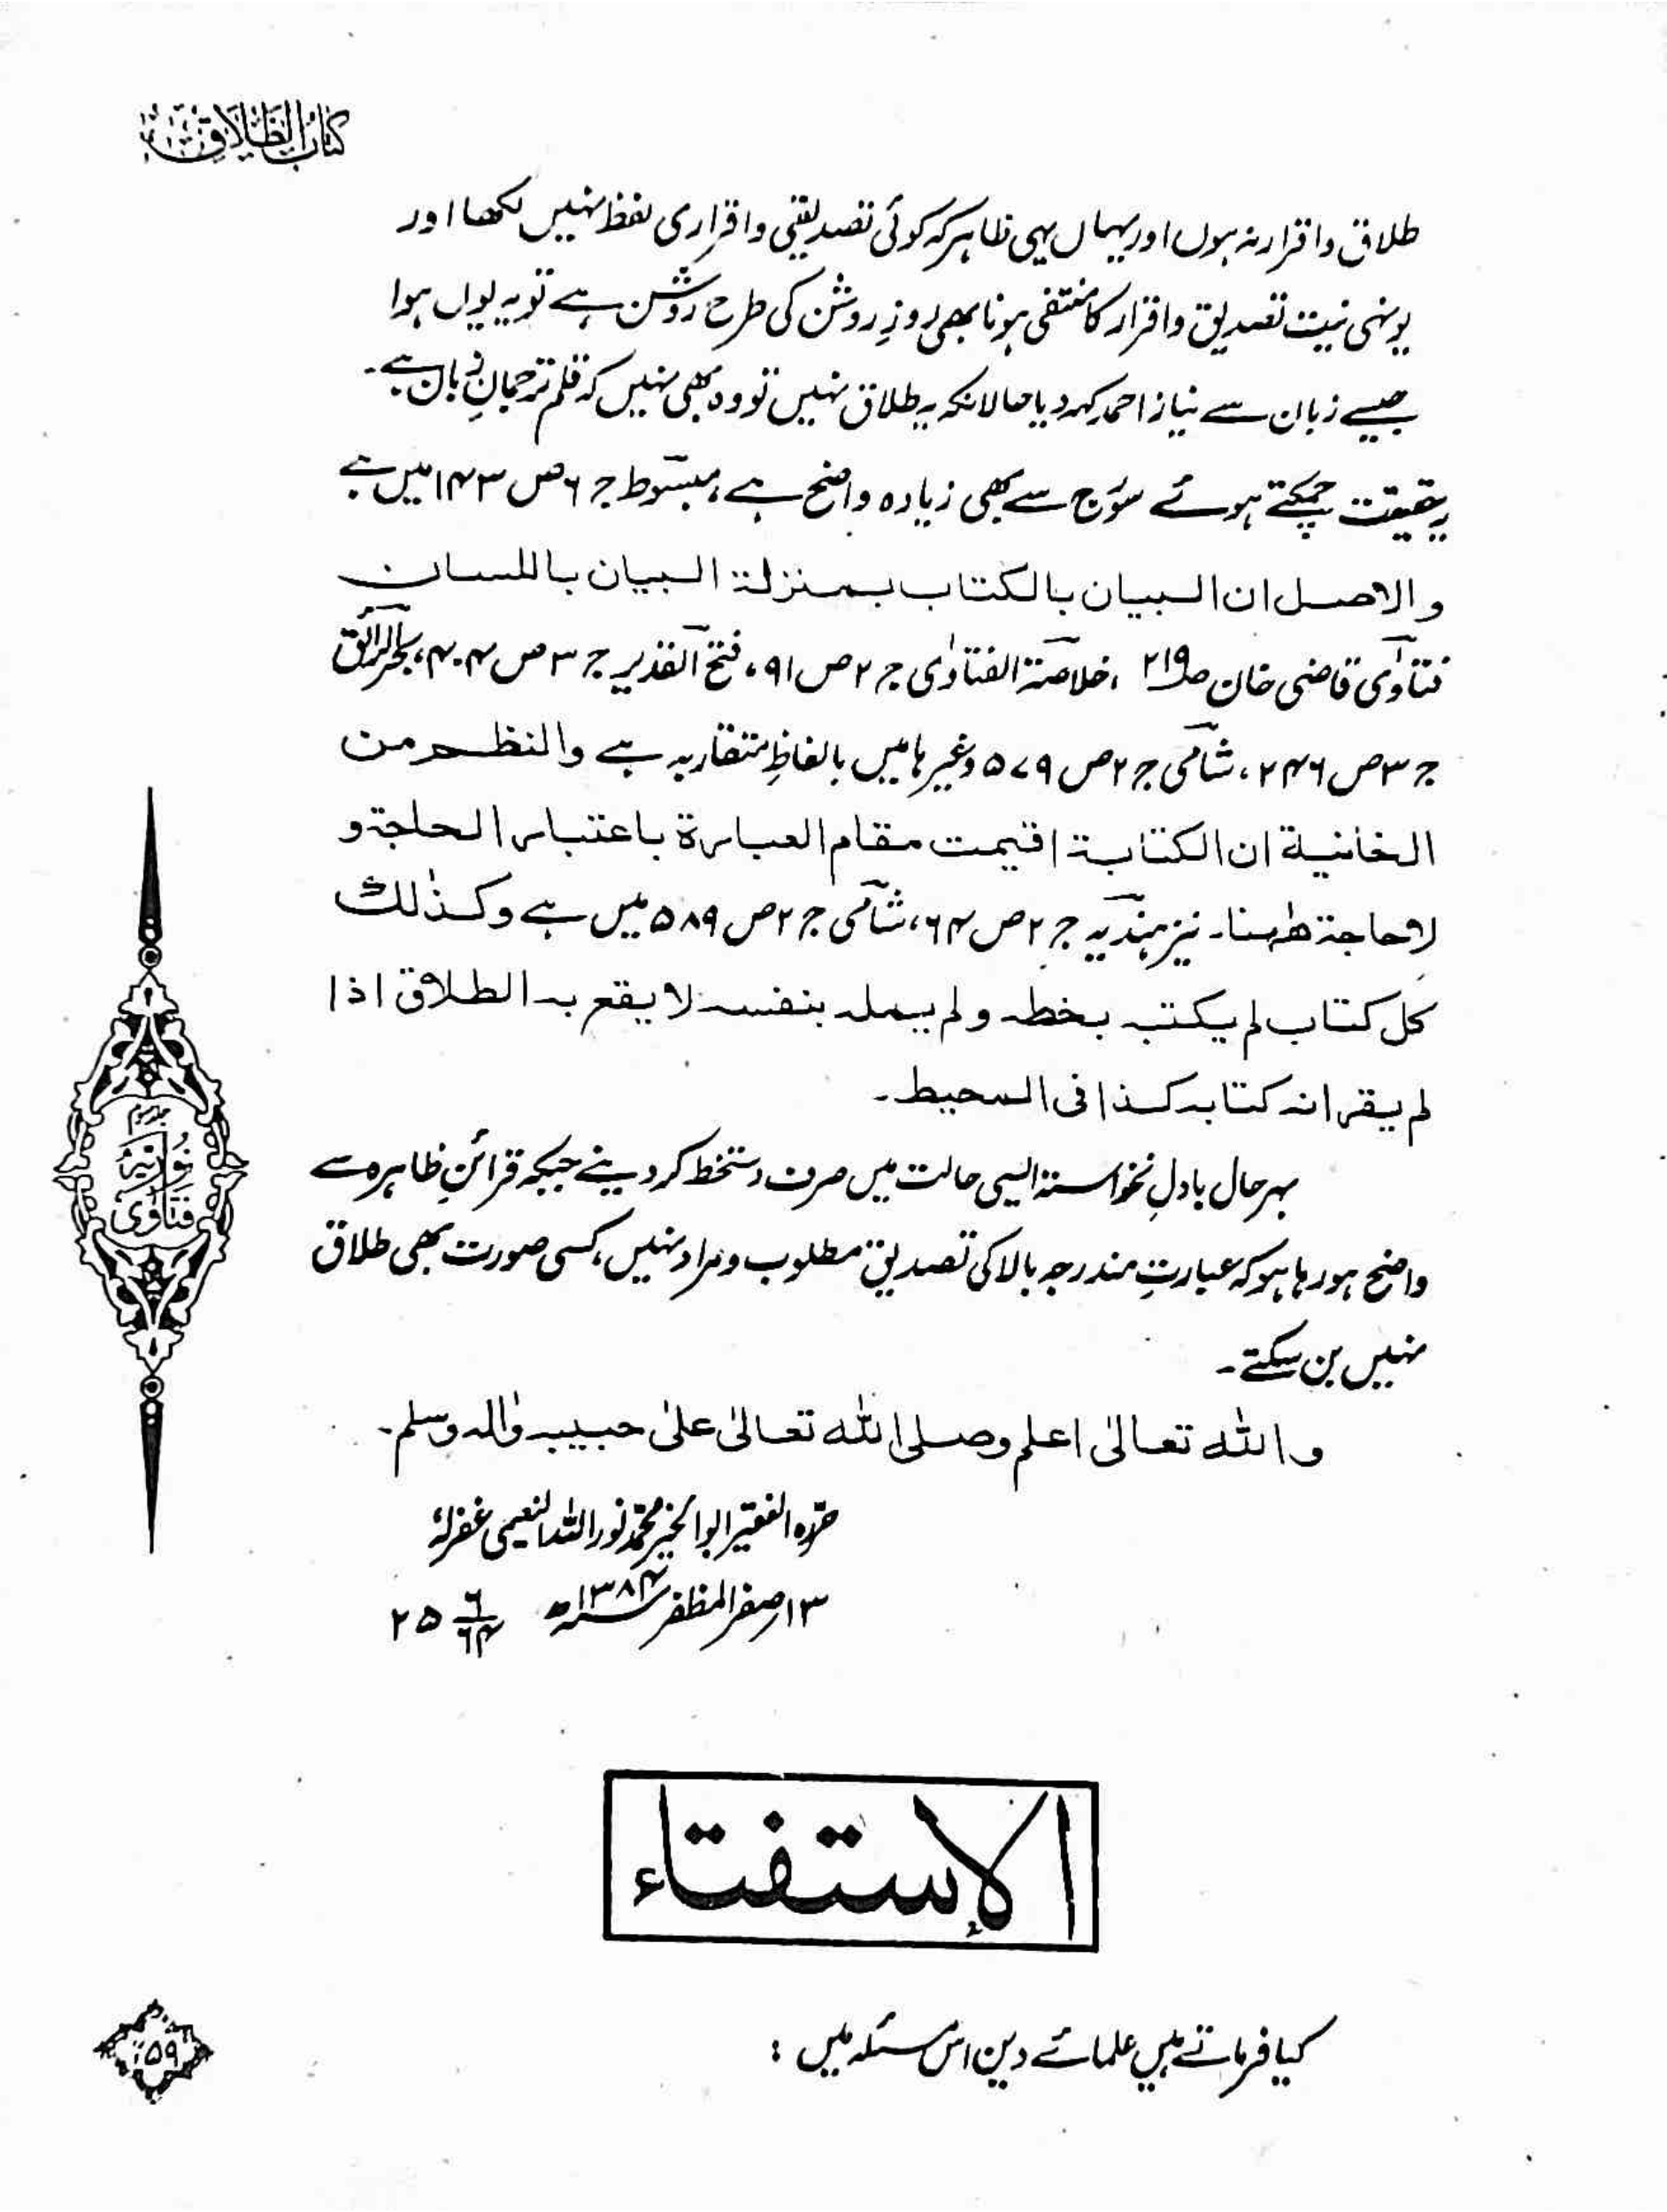 کتاب الطلاق
طلاق و اقرار نہ ہوں اور یہاں یہی ظاہر کہ کوئی تصدیقی و اقراری لفظ نہیں لکھا اور
یونہی نیت تصدیق و اقرار کا منتفی ہونا بھی روزِ روشن کی طرح روشن ہے تو یہ یوں ہوا
جیسے زبان سے نیاز احمد کہہ دیا حالانکہ یہ طلاق نہیں تو وہ بھی نہیں کہ قلم ترجمانِ زبان ہے۔
یہ حقیقت چمکتے ہوئے سورج سے بھی زیادہ واضح ہے، مبسوط ج ۶ ص ۱۴۳ میں ہے
والاصل ان البیان بالکتاب بمنزلۃ البیان باللسان
فتاوٰی قاضی خان ص ۲۱۹ ، خلاصۃ الفتاوٰی ج ۲ ص ۹۱ ، فتح القدیر ج ۳ ص ۴۰۴، بحر الرائق
ج ۳ ص ۲۴۶ ، شامی ج ۲ ص ۵۷۹ وغیرہا میں بالفاظِ متقاربہ ہے والنظم من
الخانیۃ ان الکتابۃ اقیمت مقام العبارۃ باعتبار الحاجۃ و
لاحاجۃ ھٰھنا۔ نیز ہندیہ ج ۲ ص ۶۴ ، شامی ج ۲ ص ۵۸۹ میں ہے وکذٰلک
کل کتاب لم یکتبہ بخطہ ولم یملہ بنفسہ لا یقع بہ الطلاق اذا
لم یقر انہ کتابہ کذا فی المحیط۔
بہرحال بادلِ نخواستہ ایسی حالت میں صرف دستخط کر دینے جبکہ قرائنِ ظاہرہ سے
واضح ہو رہا ہو کہ عبارتِ مندرجہ بالا کی تصدیق مطلوب و مراد نہیں، کسی صورت بھی طلاق
نہیں بن سکتے۔
واللہ تعالیٰ اعلم وصلی اللہ تعالیٰ علیٰ حبیبہ واٰلہ وسلم۔
حررہ الفقیر ابو الخیر محمد نور اللہ النعیمی غفرلہٗ
۱۳ صفر المظفر ۱۳۸۴ھ ۲۵ ۶/۶۴
فتاوٰی نوریہ
الاستفتاء
کیا فرماتے ہیں علمائے دین اس مسئلہ میں :
۱۵۹